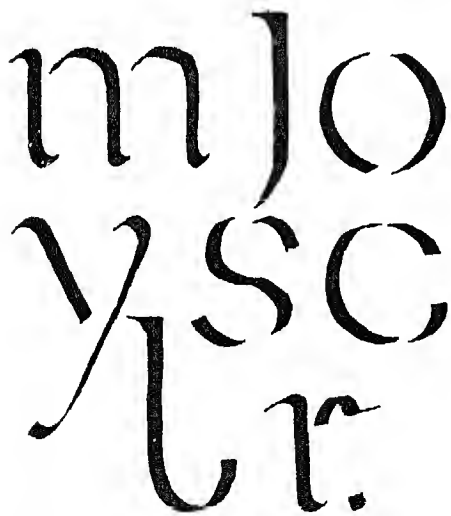 m J o
y s c
l r.